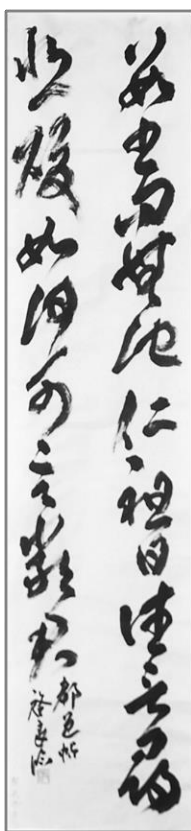 數書問無他仁祖日往言尋
悲酸如何可言嚴君
都邑帖
臨